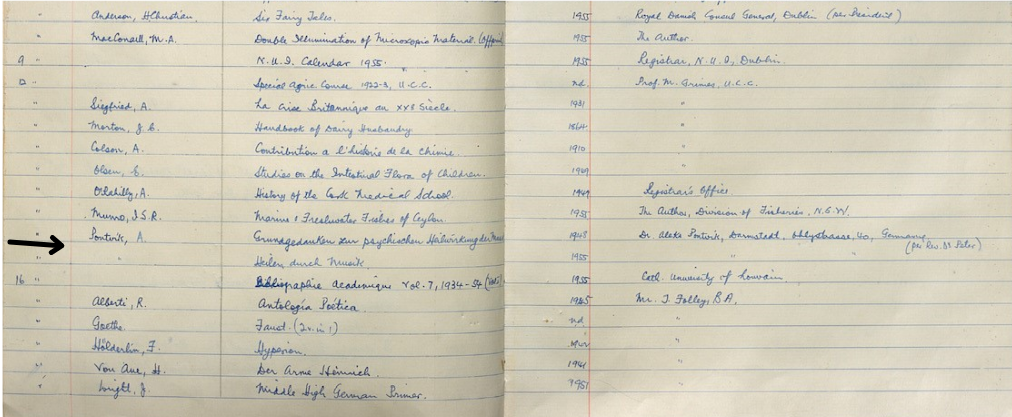 " Anderson, HChristian, Six Fairy Tales. 1955 Royal Danish Consul General, Dublin (per President)
" MacConaill, M.A. Double Illumination of Microscopic Material. 1955 The Author.
9 " N.U.I. Calendar 1955. 1955 Registrar, N.U.I, Dublin.
" Special Agric Course 1922-3, U.C.C. nd. Prof. M. Grimes, U.C.C.
" Siegfried, A. La Crise Britannique au XXe Siècle. 1931 "
" Morton, J.C. Handbook of Dairy Husbandry "
" Colson, A. Contribution a l'histoire de la Chimie. 1910 "
" Olsen, E. Studies on the Intestinal Flora of Children. 1949 "
" O'Rahilly, A. History of the Cork Medical School. 1949 Registrar's Office.
" Munro, I.S.R. Marine & Freshwater Fishes of Ceylon 1955 The Author, Division of Fisheries, N.S.W.
" Pontvik, A. Grundgedanken zur psychischen Heilwirkung der 1948 Dr. Aleks Pontvik, Darmstadt, 40, Germany
(per Rev. Dr Peter)
" " Heilen durch Musik 1955 "
16 " Bibliographie Academique Vol. 7, 1934-54 1955 Cath. University of Louvain
" Alberti, R. Antología Poética. 1945 Mr. T. Folley, B.A.
" Goethe. Faust. (2v. in 1) nd. "
" Hölderlin, F. Hyperion. "
" Von Aue, H. Der Arme Heinrich. 1941 "
" Wright, J. Middle High German Primer. 1951